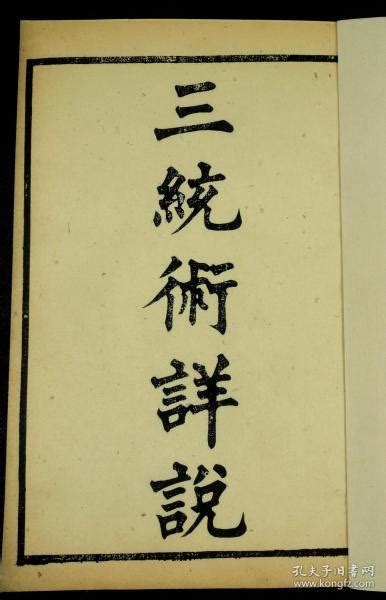 三統術詳說
孔夫子旧书网
www.kongfz.com